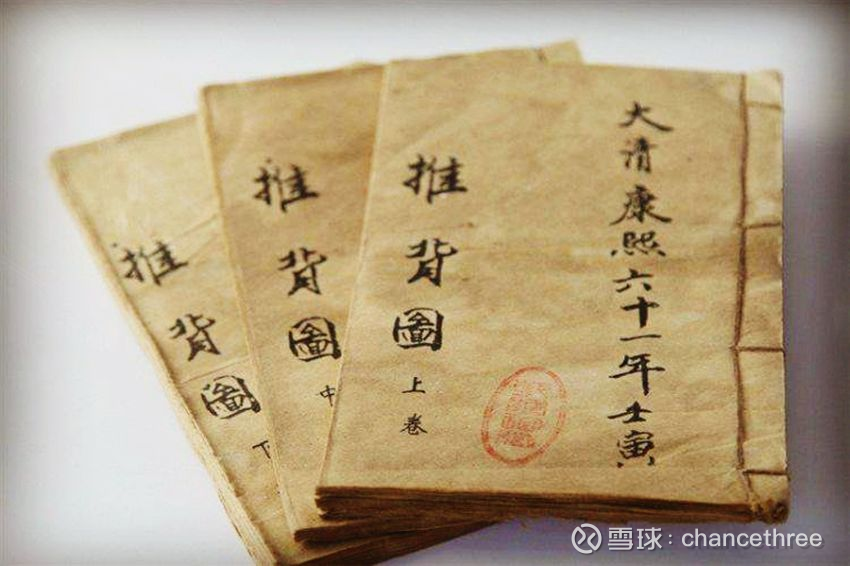 大清康熙六十一年壬寅
推背圖
上卷
推背圖
中
推背圖
下
雪球：chancethree